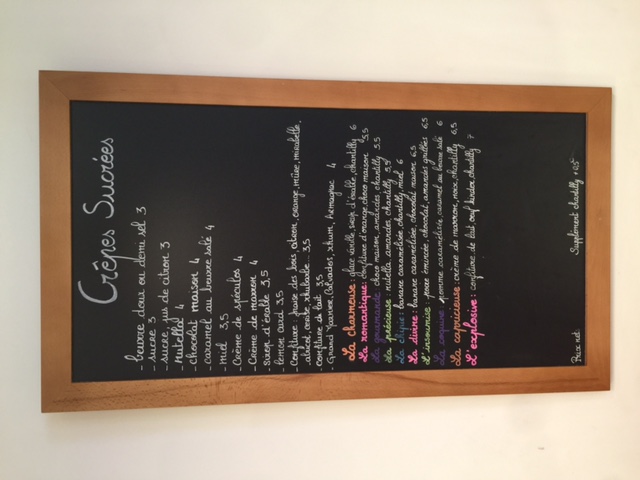 Crêpes Sucrées
- beurre doux ou demi sel 3
- sucre 3
- sucre, jus de citron 3
- Nutella 4
- chocolat maison 4
- caramel au beurre salé 4
- miel 3,5
- Crème de spéculos 4
- Crème de marron 4
- sirop d'érable 3,5
- lemon curd 3,5
- Confiture: fraise des bois, citron, orange, mûre, mirabelle,
abricot, rhubarbe... 3,5
- confiture de lait 3,5
- Grand Marnier, Calvados, rhum, Armagnac 4
La charmeuse: glace vanille, sirop d'érable, chantilly 6
La romantique: confiture d'orange, choco maison 5,5
La gourmande: choco maison, amandes, chantilly 5,5
La précieuse: nutella, amandes, chantilly 5,5
La chipie: banane caramélisée, chantilly, miel 6
La divine: banane caramélisée, chocolat maison 6,5
L'insoumise: poire émincée, chocolat, amandes grillées 6,5
La coquine: pomme caramélisée, caramel au beurre salé 6
La capricieuse: crème de marron, noix, chantilly 6,5
L'explosive: confiture de lait, oeuf kinder, chantilly 7
Prix net. Supplément chantilly + 0,5